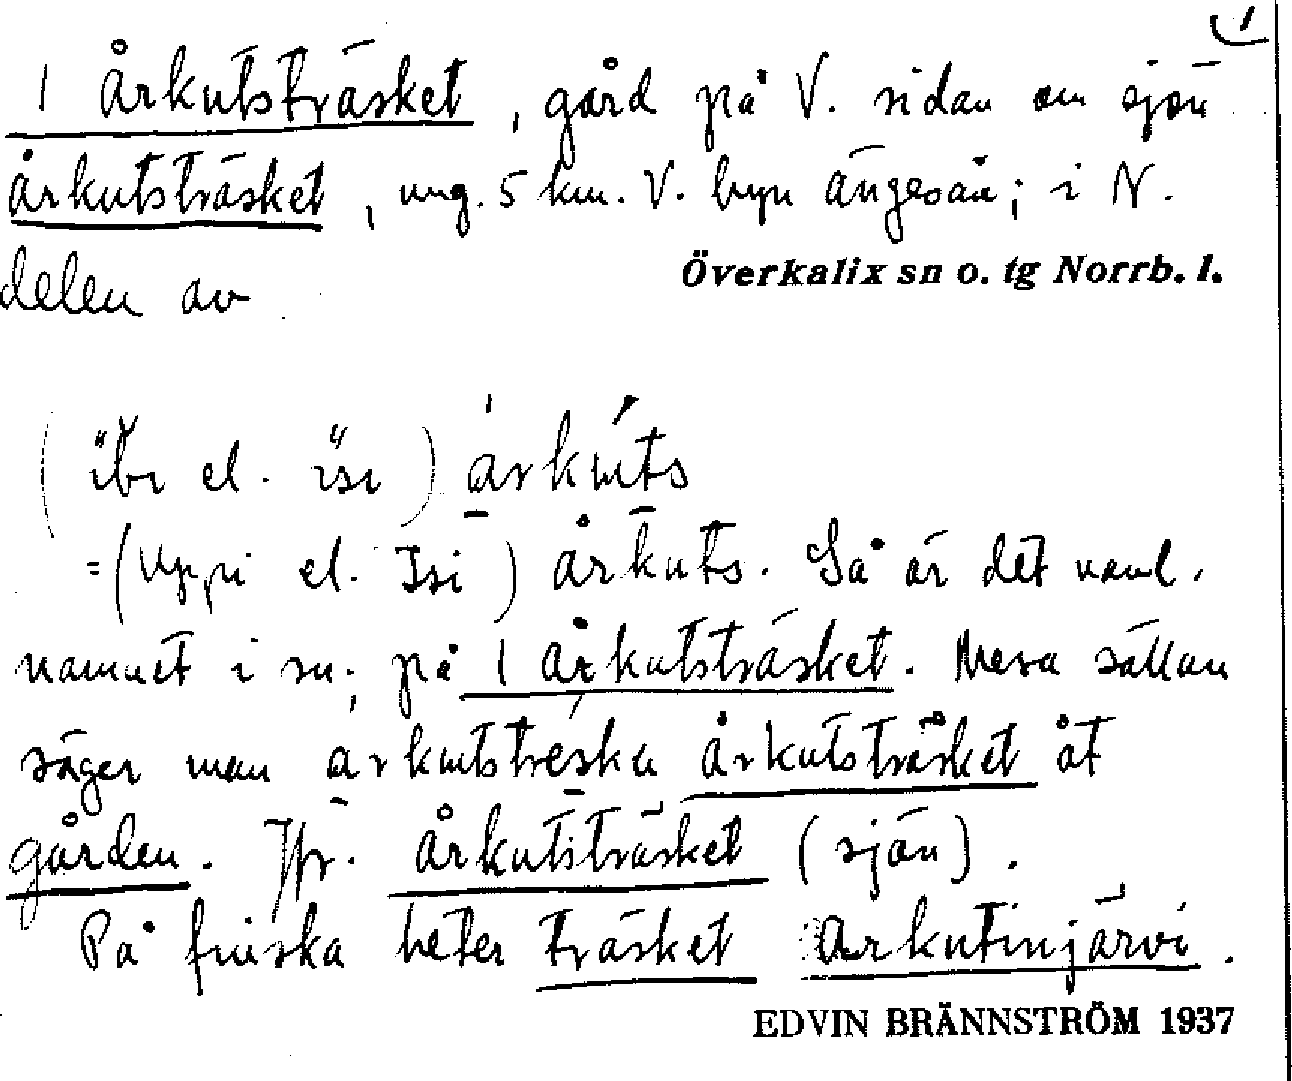 1
1 Årkutsträsket, gård på V. sidan om sjön
Årkutsträsket, ung. 5 km. V. byn Ängesån; i N.
delen av Överkalix sn o. tg Norrb. l.
( el. ) årkuts
=(Uppi el. Isi) Årkuts. Så är det vanl.
namnet i sn; på 1 Årkutsträsket. Mera sällan
säger man Årkutsträsket åt
gården. Jfr. Årkutsträsket (sjön).
På finska heter träsket Arkutinjärvi.
EDVIN BRÄNNSTRÖM 1937